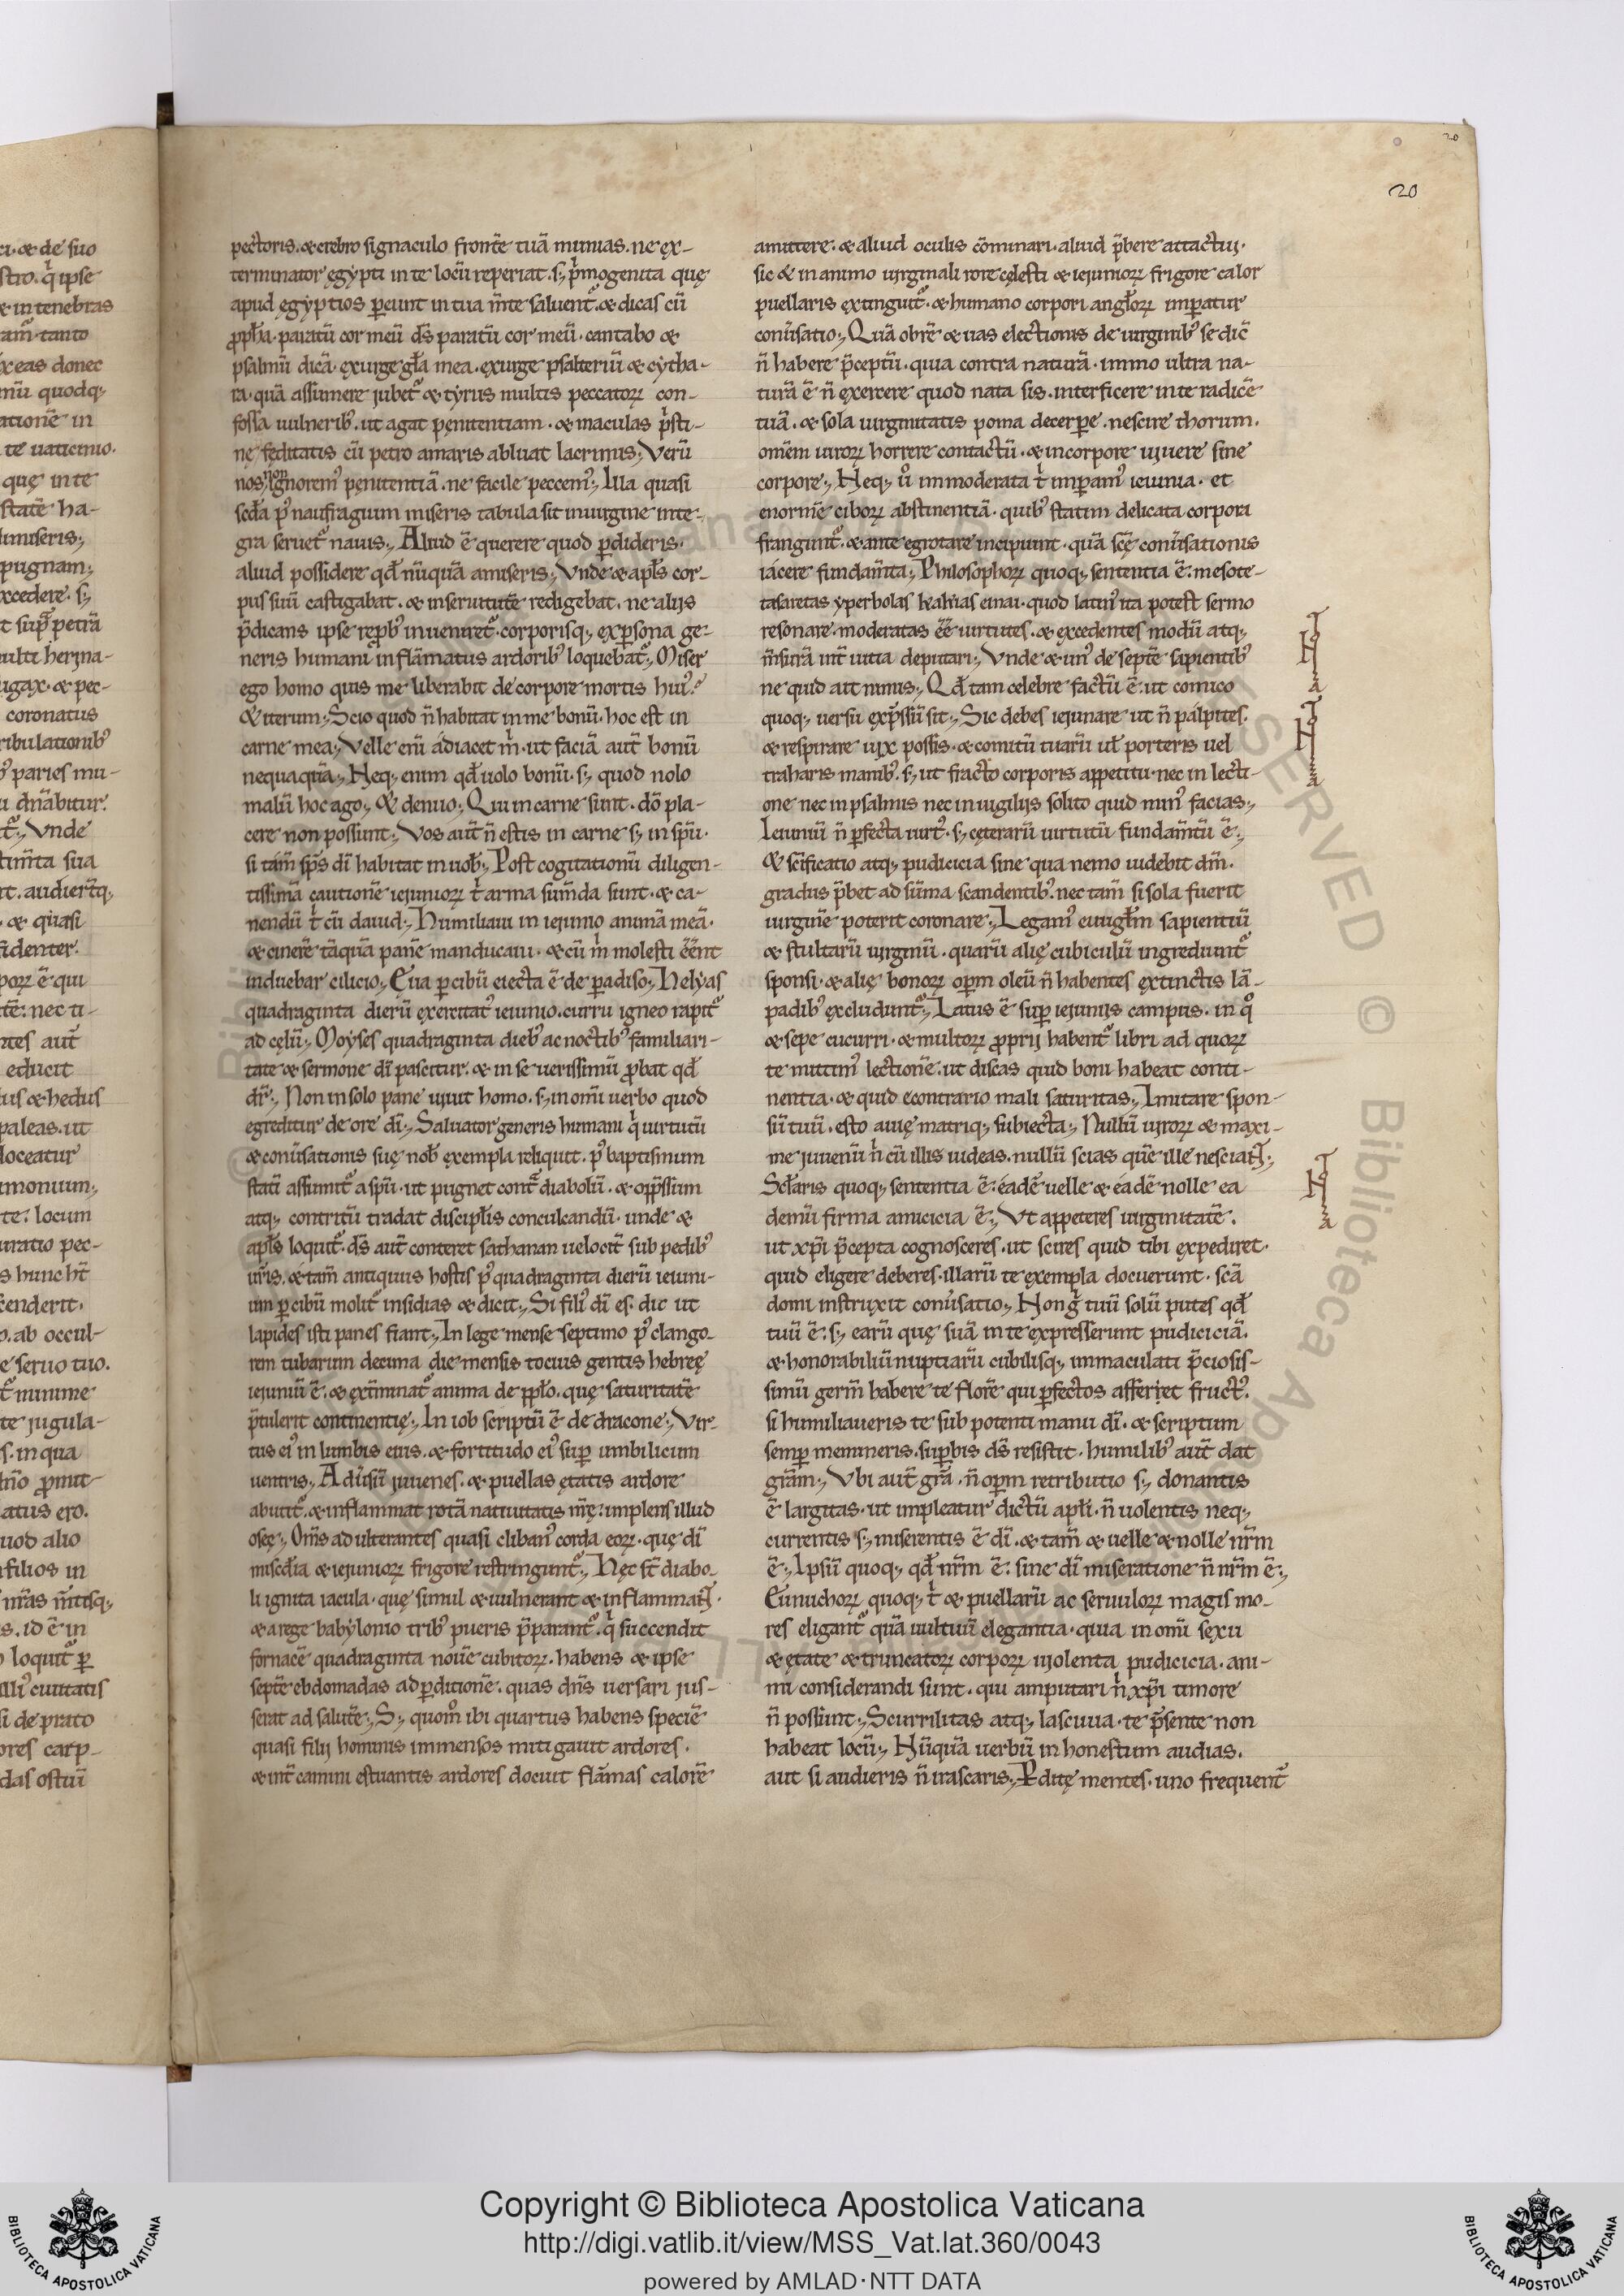 20
20
pectoris. & crebro signaculo frontē tuā munias. ne ex-
terminator ęgypti in te locū reperiat. s; pͥmogenita quę
apud ęgyptios ꝑeunt in tua m̄te saluent᷑. & dicas cū
ꝓph̄a. paratū cor meū ds̄ paratū cor meū. cantabo &
psalmū dicā. exurge gl̄a mea. exurge psalteriū & cytha-
ra. quā assumere jubet᷑ & tyrus multis peccatoꝝ con-
fossa uulnerib; ut agat pęnitentiam. & maculas pͥsti-
nę fęditatis cū petro amaris abluat lacrimis; Verū
nos non ignorem; pęnitentiā. ne facile peccem; Illa quasi
scd̄a p; naufragium miseris tabula sit in uirgine inte-
gra seruet᷑ nauis; Aliud ē querere quod ꝑdideris.
aliud possidere qd̄ nūquā amiseris; Vnde & apl̄s cor-
pus suū castigabat. & in seruitutē redigebat. ne alijs
p̄dicans ipse rep̄b; inueniret᷑. corporisq; ex ꝑsona ge-
neris humani inflāmatus ardorib; loquebat᷑; Miser
ego homo quis me liberabit de corpore mortis hui;?
& iterum; Scio quod n̄ habitat in me bonū. hoc est in
carne mea; Velle enī adiacet mͥ. ut faciā aut̄ bonū
nequaquā; Neq; enim qd̄ uolo bonū. s; quod nolo
malū hoc ago; & denuo; Qui in carne sunt. dō pla-
cere non possunt; Vos aut̄ n̄ estis in carne s; in sp̄u.
si tam̄ sp̄s dī habitat in uob̄; Post cogitationū diligen-
tissimā cautionē iejunioꝝ tͥ arma sum̄da sunt. & ca-
nendū tͥ cū dauid; Humiliaui in iejunio animā meā.
& cinerē tāquā panē manducaui. & cū mͥ molesti ēent
induebar cilicio; Eua ꝑ cibū eiecta ē de ꝑadiso; Helyas
quadraginta dierū exercitat; ieiunio. curru igneo rapit᷑
ad cęlū; Moyses quadraginta dieb; ac noctib; familiari-
tate & sermone dī pascitur. & in se uerissimū ꝓbat qd̄
dr̄; Non in solo pane uiuit homo. s; in om̄i uerbo quod
egreditur de ore dī; Saluator generis humani qͥ uirtutū
& conūsationis suę nob̄ exempla reliquit. p; baptismum
statī assumit᷑ a sp̄u. ut pugnet contͣ diabolū. & opp̄ssum
atq; contritū tradat discipl̄is conculcandū. unde &
apl̄s loquit᷑. ds̄ aut̄ conteret sathanan uelocit̄ sub pedib;
ur̄is. & tam̄ antiquus hostis p; quadraginta dierū ieiuni-
um ꝑ cibū molit᷑ insidias & dicit; Si fili; dī es. dic ut
lapides isti panes fiant; In lege mense septimo p; clango-
rem tubarum decima die mensis tocius gentis hebreę
iejuniū ē. & ext̄minat᷑ anima de ppl̄o. quę saturitatē
p̄tulerit continentię; In iob scriptū ē de dracone; Vir-
tus ei; in lumbis eius. & fortitudo ei; suꝑ umbilicum
uentris; Adūsū juuenes. & puellas ętatis ardore
abutit᷑. & inflammat rotā natiuitatis nr̄ę: implens illud
oseę; Om̄s adulterantes quasi cliban; corda eoꝝ. quę dī
misc̄dia & iejunioꝝ frigore restringunt᷑; Hęc st̄ diabo-
li ignita iacula. quę simul & uulnerant & inflammant.
& a rege babylonio trib; pueris p̄parant᷑. qͥ succendit
fornacē quadraginta nouē cubitoꝝ. habens & ipse
septē ebdomadas ad ꝑditionē. quas dn̄s uersari jus-
serat ad salutē; S; quom̊ ibi quartus habens speciē
quasi filij hominis immensos mitigauit ardores.
& int̄ camini estuantis ardores docuit flāmas calorē
amittere. & aliud oculis cōminari. aliud p̄bere attactuj.
sic & in animo uirginali rore cęlesti & iejunioꝝ frigore calor
puellaris extinguit᷑. & humano corpori angl̄oꝝ impatur
conūsatio; Quā obrē & uas electionis de uirginib; se dic̄
n̄ habere p̄ceptū. quia contra naturā. immo ultra na-
turā ē n̄ exercere quod nata sis. interficere in te radicē
tuā. & sola uirginitatis poma decerꝑe. nescire thorum.
omēm uiroꝝ horrere contactū. & in corpore uiuere sine
corpore; Neq; u̇̄o immoderata tͥ imꝑam; ieiunia. et
enormē ciboꝝ abstinentiā. quib; statim delicata corpora
frangunt᷑. & ante egrotare incipiunt. quā scę conūsationis
iácere fundam̄ta; Philosophoꝝ quoq; sententia ē: mesote-
tasaretas yperbolas kakias einai. quod latin; ita potest sermo
resonare. moderatas ēē uirtutes. & excedentes modū atq;
m̄surā int̄ uitia deputari; Vnde & un; de septē sapientib;
ne quid ait nimis; Qd̄ tam celebre factū ē. ut comico
quoq; uersu exp̄ssū sit; Sic debes iejunare ut n̄ palpites.
& respirare uix possis. & comitū tuarū ul̄ porteris uel
traharis manib; s; ut fracto corporis appetitu. nec in lecti-
one nec in psalmis nec in uigilijs solito quid min; facias;
Ieiuniū n̄ ꝑfecta uirt; s; cęterarū uirtutū fundam̄tū ē;
& sc̄ificatio atq; pudicicia sine qua nemo uidebit dm̄.
gradus p̄bet ad sūma scandentib; nec tam̄ si sola fuerit
uirginē poterit coronare; Legam; euuigl̄m sapientiū
& stultarū uirginū. quarū alię cubiculū ingrediunt᷑
sponsi. & alię bonoꝝ oꝑm oleū n̄ habentes extinctis lā-
padib; excludunt᷑; Latus ē suꝑ iejunijs campus. in q̊
& sepe cucurri. & multoꝝ ꝓprij habent᷑ libri ad quoꝝ
te mittim; lectionē. ut discas quid boni habeat conti-
nentia. & quid econtrario mali saturitas; Imitare spon-
sū tuū. esto auię matriq; subiecta; Nullū uiroꝝ & maxi-
me juuenū nͥ cū illis uideas. nullū scias quē ille nesciant;
Scl̄aris quoq; sententia ē: eadē uelle & eadē nolle ea
demū firma amicicia ē; Vt appeteres uirginitatē.
ut xp̄i p̄cepta cognosceres. ut scires quid tibi expediret.
quid eligere deberes. illarū te exempla docuerunt. scā
domi instruxit conūsatio; Non gͥ tuū solū putes qd̄
tuū ē: s; earū quę suā in te expresserunt pudiciciā.
& honorabiliū nuptiarū cubilisq; immaculati p̄ciosis-
simū germ̄ habere te florē qui ꝑfectos afferiet fruct;
si humiliaueris te sub potenti manu dī. & scriptum
semꝑ memineris. suꝑbis ds̄ resistit. humilib; aut̄ dat
gr̄am; Vbi aut̄ gr̄a. n̄ oꝑm retributio s; donantis
ē largitas. ut impleatur dictū apl̄i. n̄ uolentis neq;
currentis s; miserentis ē dī. & tam̄ & uelle & nolle nr̄m
ē; Ipsū quoq; qd̄ nr̄m ē. sine dī miseratione n̄ nr̄m ē;
Eunuchoꝝ quoq; tͥ & puellarū ac seruuloꝝ magis mo-
res eligant᷑ quā uultuū elegantia. quia in om̄i sexu
& ętate & truncatoꝝ corpoꝝ uiolenta pudicicia. ani-
mi considerandi sunt. qui amputari nͥ xp̄i timore
n̄ possunt; Scurrilitas atq; lasciuia. te p̄sente non
habeat locū; Nūquā uerbū inhonestum audias.
aut si audieris n̄ irascaris; Ꝑditę mentes. uno frequent᷑
Copyright © Biblioteca Apostolica Vaticana
http://digi.vatlib.it/view/MSS_Vat.lat.360/0043
powered by AMLAD·NTT DATA
BIBLIOTECA APOSTOLICA VATICANA
BIBLIOTECA APOSTOLICA VATICANA